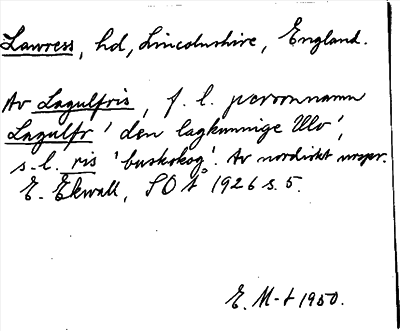 Lawress, hd, Lincolnshire, England.
Av Lagulfris, f. l. personnamn
Lagulfr 'den lagkunnige Ulv',
s. l. ris 'buskskog'. Av nordiskt urspr.
E. Ekwall, SOÅ 1926 s. 5.
E. M-t 1950.